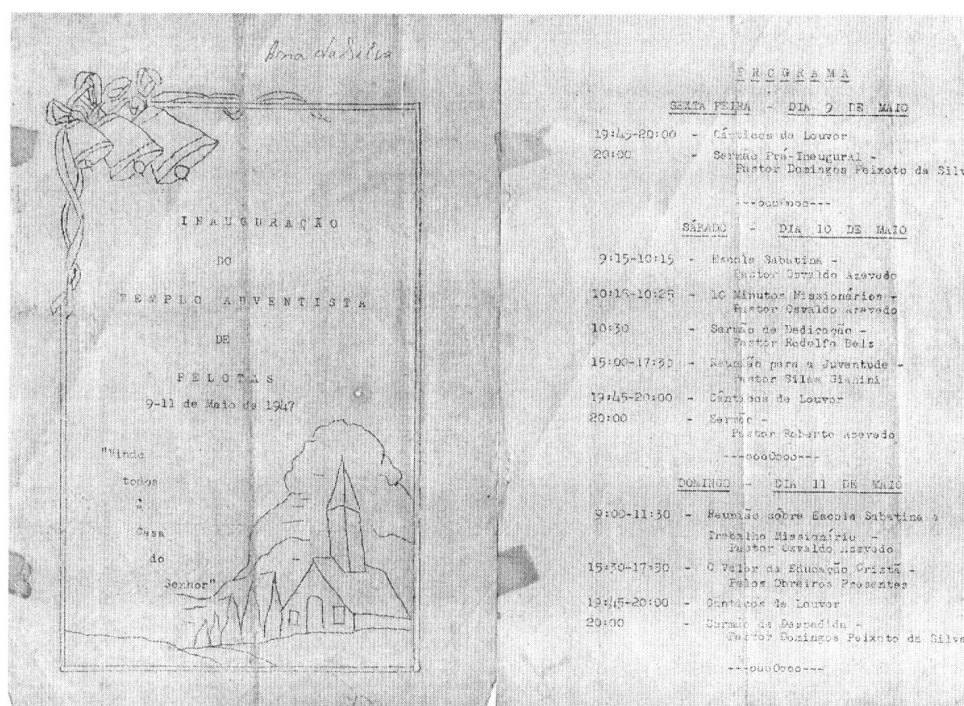 Ana da Silva
INAUGURAÇÃO
DO
TEMPLO ADVENTISTA
DE
PELOTAS
9-11 de Maio de 1947
"Vinde
todos
à
Casa
do
Senhor"
PROGRAMA
SEXTA FEIRA - DIA 9 DE MAIO
19:45-20:00 - Cânticos de Louvor
20:00 - Sermão Pré-Inaugural -
Pastor Domingos Peixoto da Silv
---oooOooo---
SÁBADO - DIA 10 DE MAIO
9:15-10:15 - Escola Sabatina -
Pastor Osvaldo Azevedo
10:15-10:25 - 10 Minutos Missionários -
Pastor Osvaldo Azevedo
10:30 - Sermão de Dedicação -
Pastor Rodolfo Belz
15:00-17:30 - Reunião para a Juventude -
Pastor Silas Gianini
19:45-20:00 - Cânticos de Louvor
20:00 - Sermão -
Pastor Roberto Azevedo
---oooOooo---
DOMINGO - DIA 11 DE MAIO
9:00-11:30 - Reunião sôbre Escola Sabatina e
Trabalho Missionário -
Pastor Osvaldo Azevedo
15:30-17:30 - O Valor da Educação Cristã -
Pelos Obreiros Presentes
19:45-20:00 - Cânticos de Louvor
20:00 - Sermão de Despedida -
Pastor Domingos Peixoto da Silva
---oooOooo---